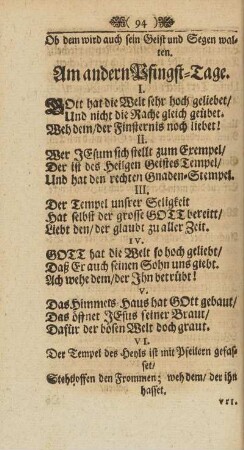 ( 94 )
Ob dem wird auch sein Geist und Segen wal-
ten.
Am andern Pfingst-Tage.
I.
GOtt hat die Welt sehr hoch geliebet/
Und nicht die Rache gleich geübet.
Weh dem/ der Finsternis noch liebet!
II.
Wer JEsum sich stellt zum Exempel/
Der ist des Heilgen Geistes Tempel/
Und hat den rechten Gnaden-Stempel.
III.
Der Tempel unsrer Seligkeit
Hat selbst der grosse GOTT bereitt/
Liebt den/ der glaubt zu aller Zeit.
IV.
GOTT hat die Welt so hoch geliebt/
Daß Er auch seinen Sohn uns giebt.
Ach wehe dem/ der Ihn betrübt!
V.
Das Himmels-Haus hat GOtt gebaut/
Das öffnet JEsus seiner Braut/
Dafür der bösen Welt doch graut.
VI.
Der Tempel des Heyls ist mit Pfeilern gefas-
set/
Steht offen den Frommen; weh dem/ der ihn
hasset.
VII.